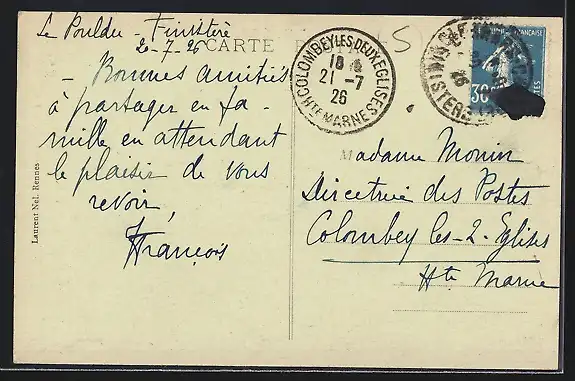 Le Pouldu - Finistère
20-7-26
CARTE
- Bonnes amitiés
à partager en fa-
mille en attendant
le plaisir de vous
revoir,
François
Laurent Nel, Rennes
COLOMBEY LES DEUX EGLISES
18
21 -7
26
HTE MARNE
FINISTERE
30
Madame Monin
Directrice des Postes
Colombey les-2-Eglises
Hte Marne